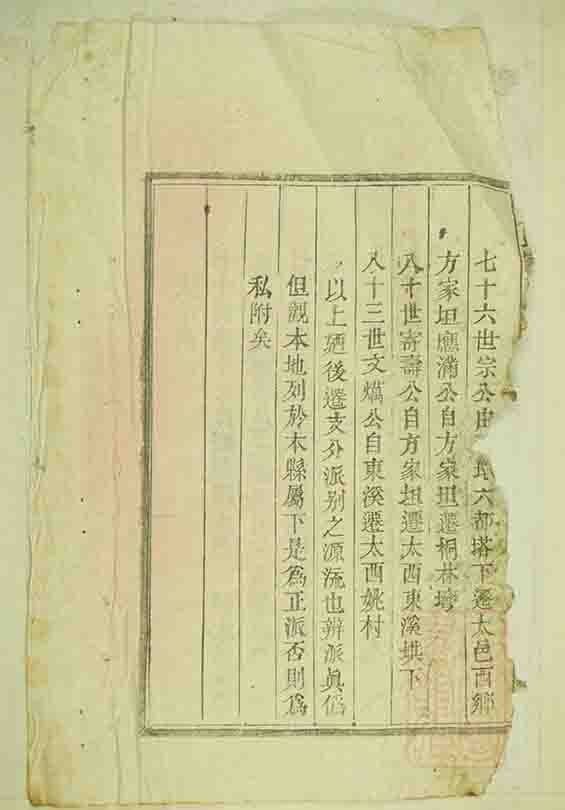 七十六世宗公由六都塔下遷太邑西鄉
方家坦應滿公自方家坦遷桐林塆
八十世寄壽公自方家坦遷太西東溪拱下
八十三世文爀公自東溪遷太西姚村
以上廼後遷支分派别之源流也辨派眞僞
但觀本地列於本縣屬下是爲正派否則爲
私附矣